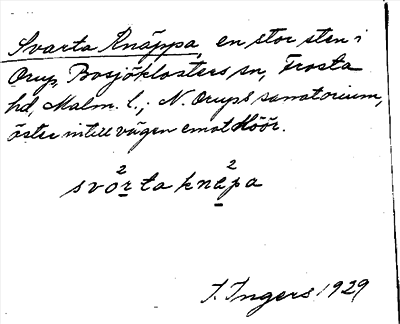 Svarta Knäppa, en stor sten i
Orup, Bosjöklosters sn, Frosta
hd, Malm. l.; N. Orups sanatorium,
öster intill vägen emot Höör.
svo²rta knä²pa
I. Ingers 1929